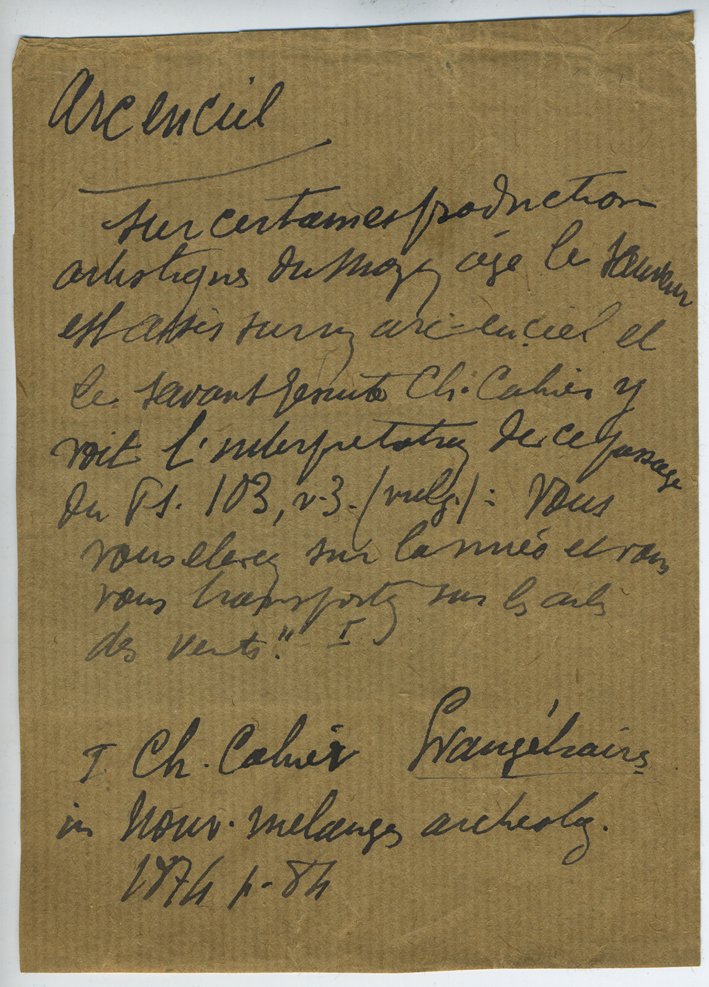 Arc en ciel
Sur certaines production
artistiques du Moyen age le Sauveur
est assis sur un arc-en-ciel et
le savant Jesuite Ch. Cahier y
voit l'interpretation de ce passage
du Ps. 103, v. 3. (vulg.): Vous
vous elevez sur la nuée et vous
vous transportez sur les ailes
des vents". I
I Ch. Cahier Evangéliaire
in Nouv. melanges archeolog.
1874 p. 84